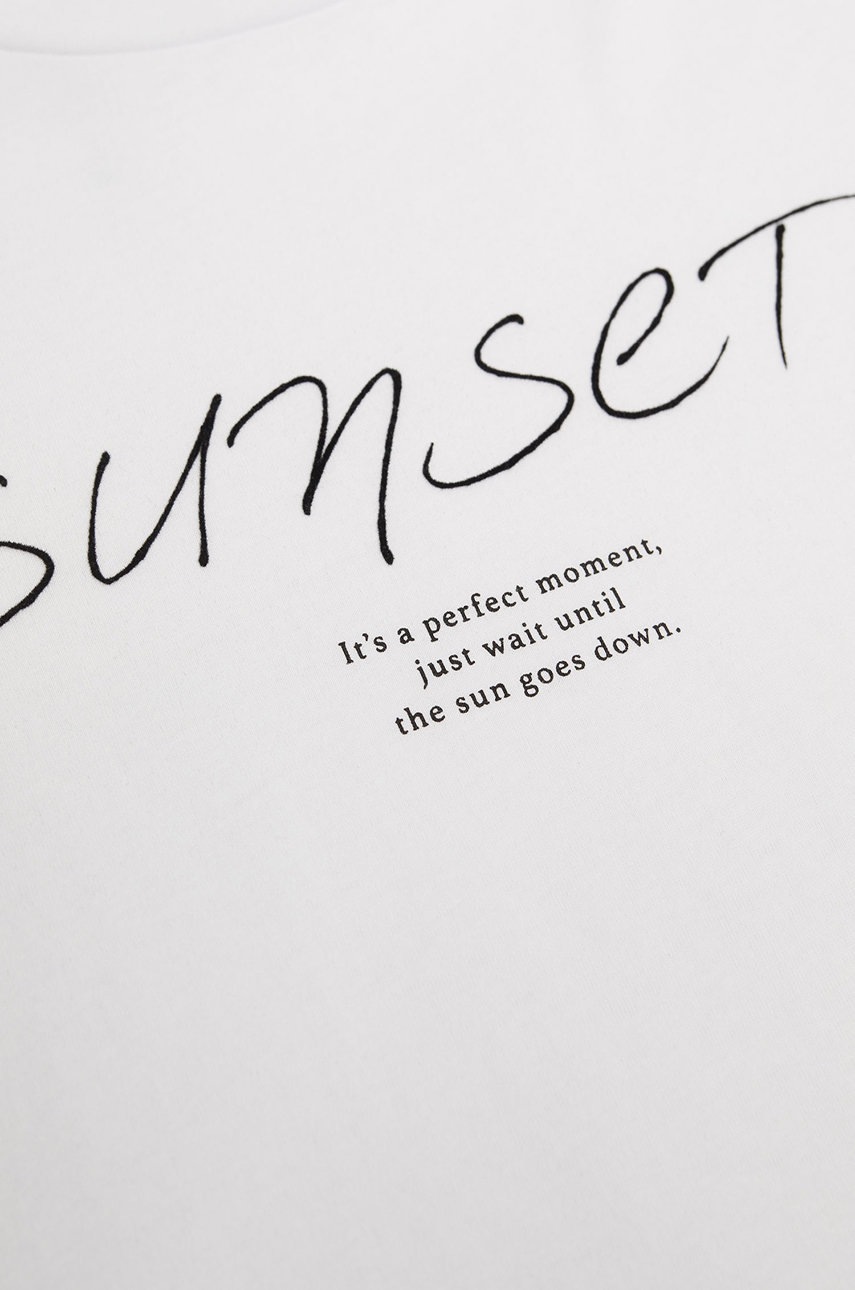 sunset
It's a perfect moment,
just wait until
the sun goes down.